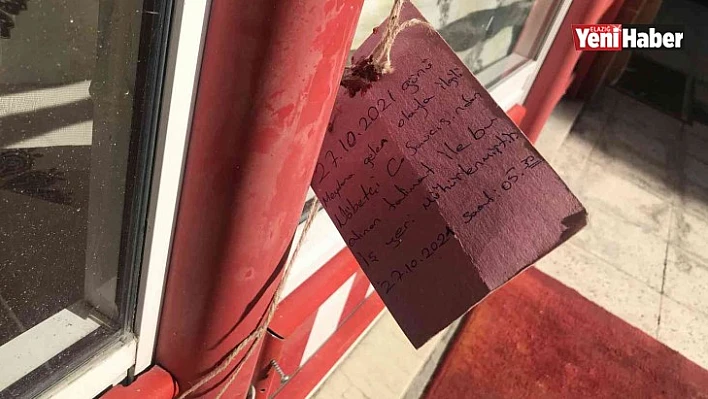 ELAZIĞ
YeniHaber
27.10.2021 günü
Meydana gelen olayla ilgili
Nöbetçi C. Savcısından
alınan talimat ile bu
İş yeri mühürlenmiştir
27.10.2021 saat: 05.30